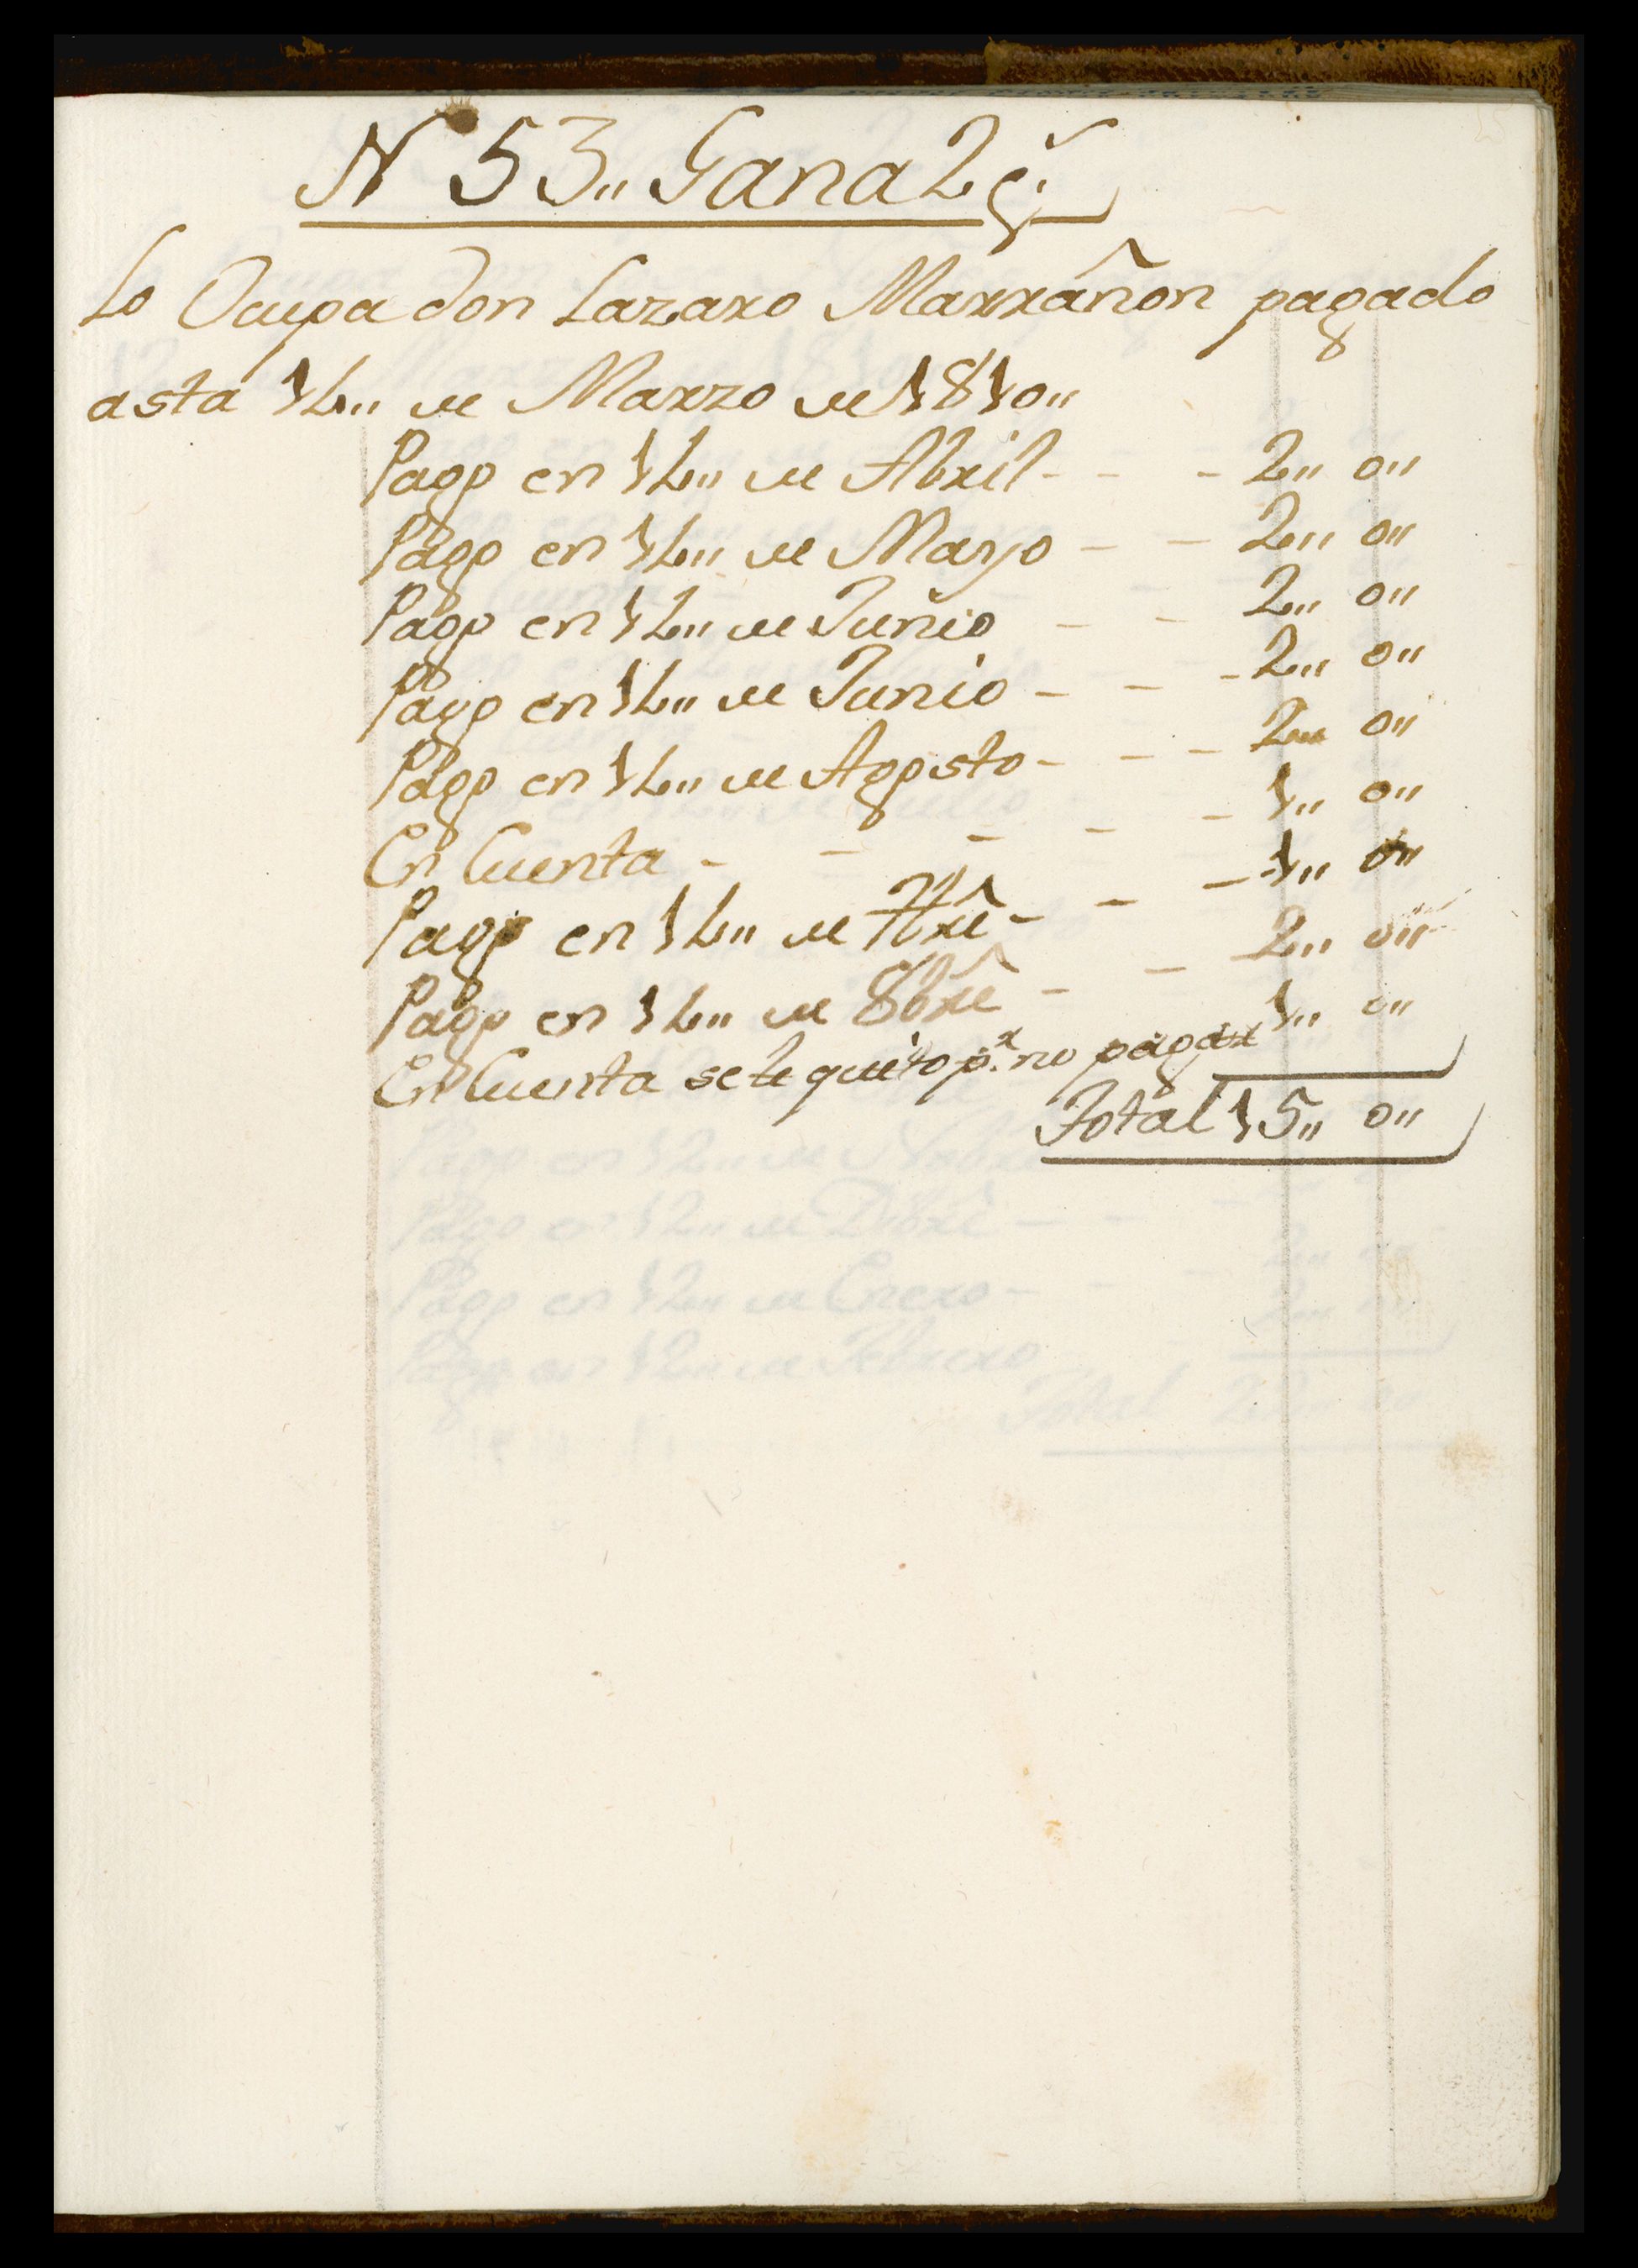 N 53,, Gana 2 p.s
Lo Ocupa don Lazaro Marrañon pagado
asta 12,, de Marzo de 1810,,
Pago en 12,, de Abril - - 2,, 0,,
Pago en 12,, de Mayo - - 2,, 0,,
Pago en 12,, de Junio - - 2,, 0,,
Pago en 12,, de Junio - - - 2,, 0,,
Pago en 12,, de Agosto - - - 2,, 0,,
En Cuenta - - - - - 1,, 0,,
Pago en 12,, de 7bre - - - 1,, 0,,
Pago en 12,, de 8bre - - 2,, 0,,
En Cuenta se le quito p.r no pagar 1,, 0,,
Total 15,, 0,,